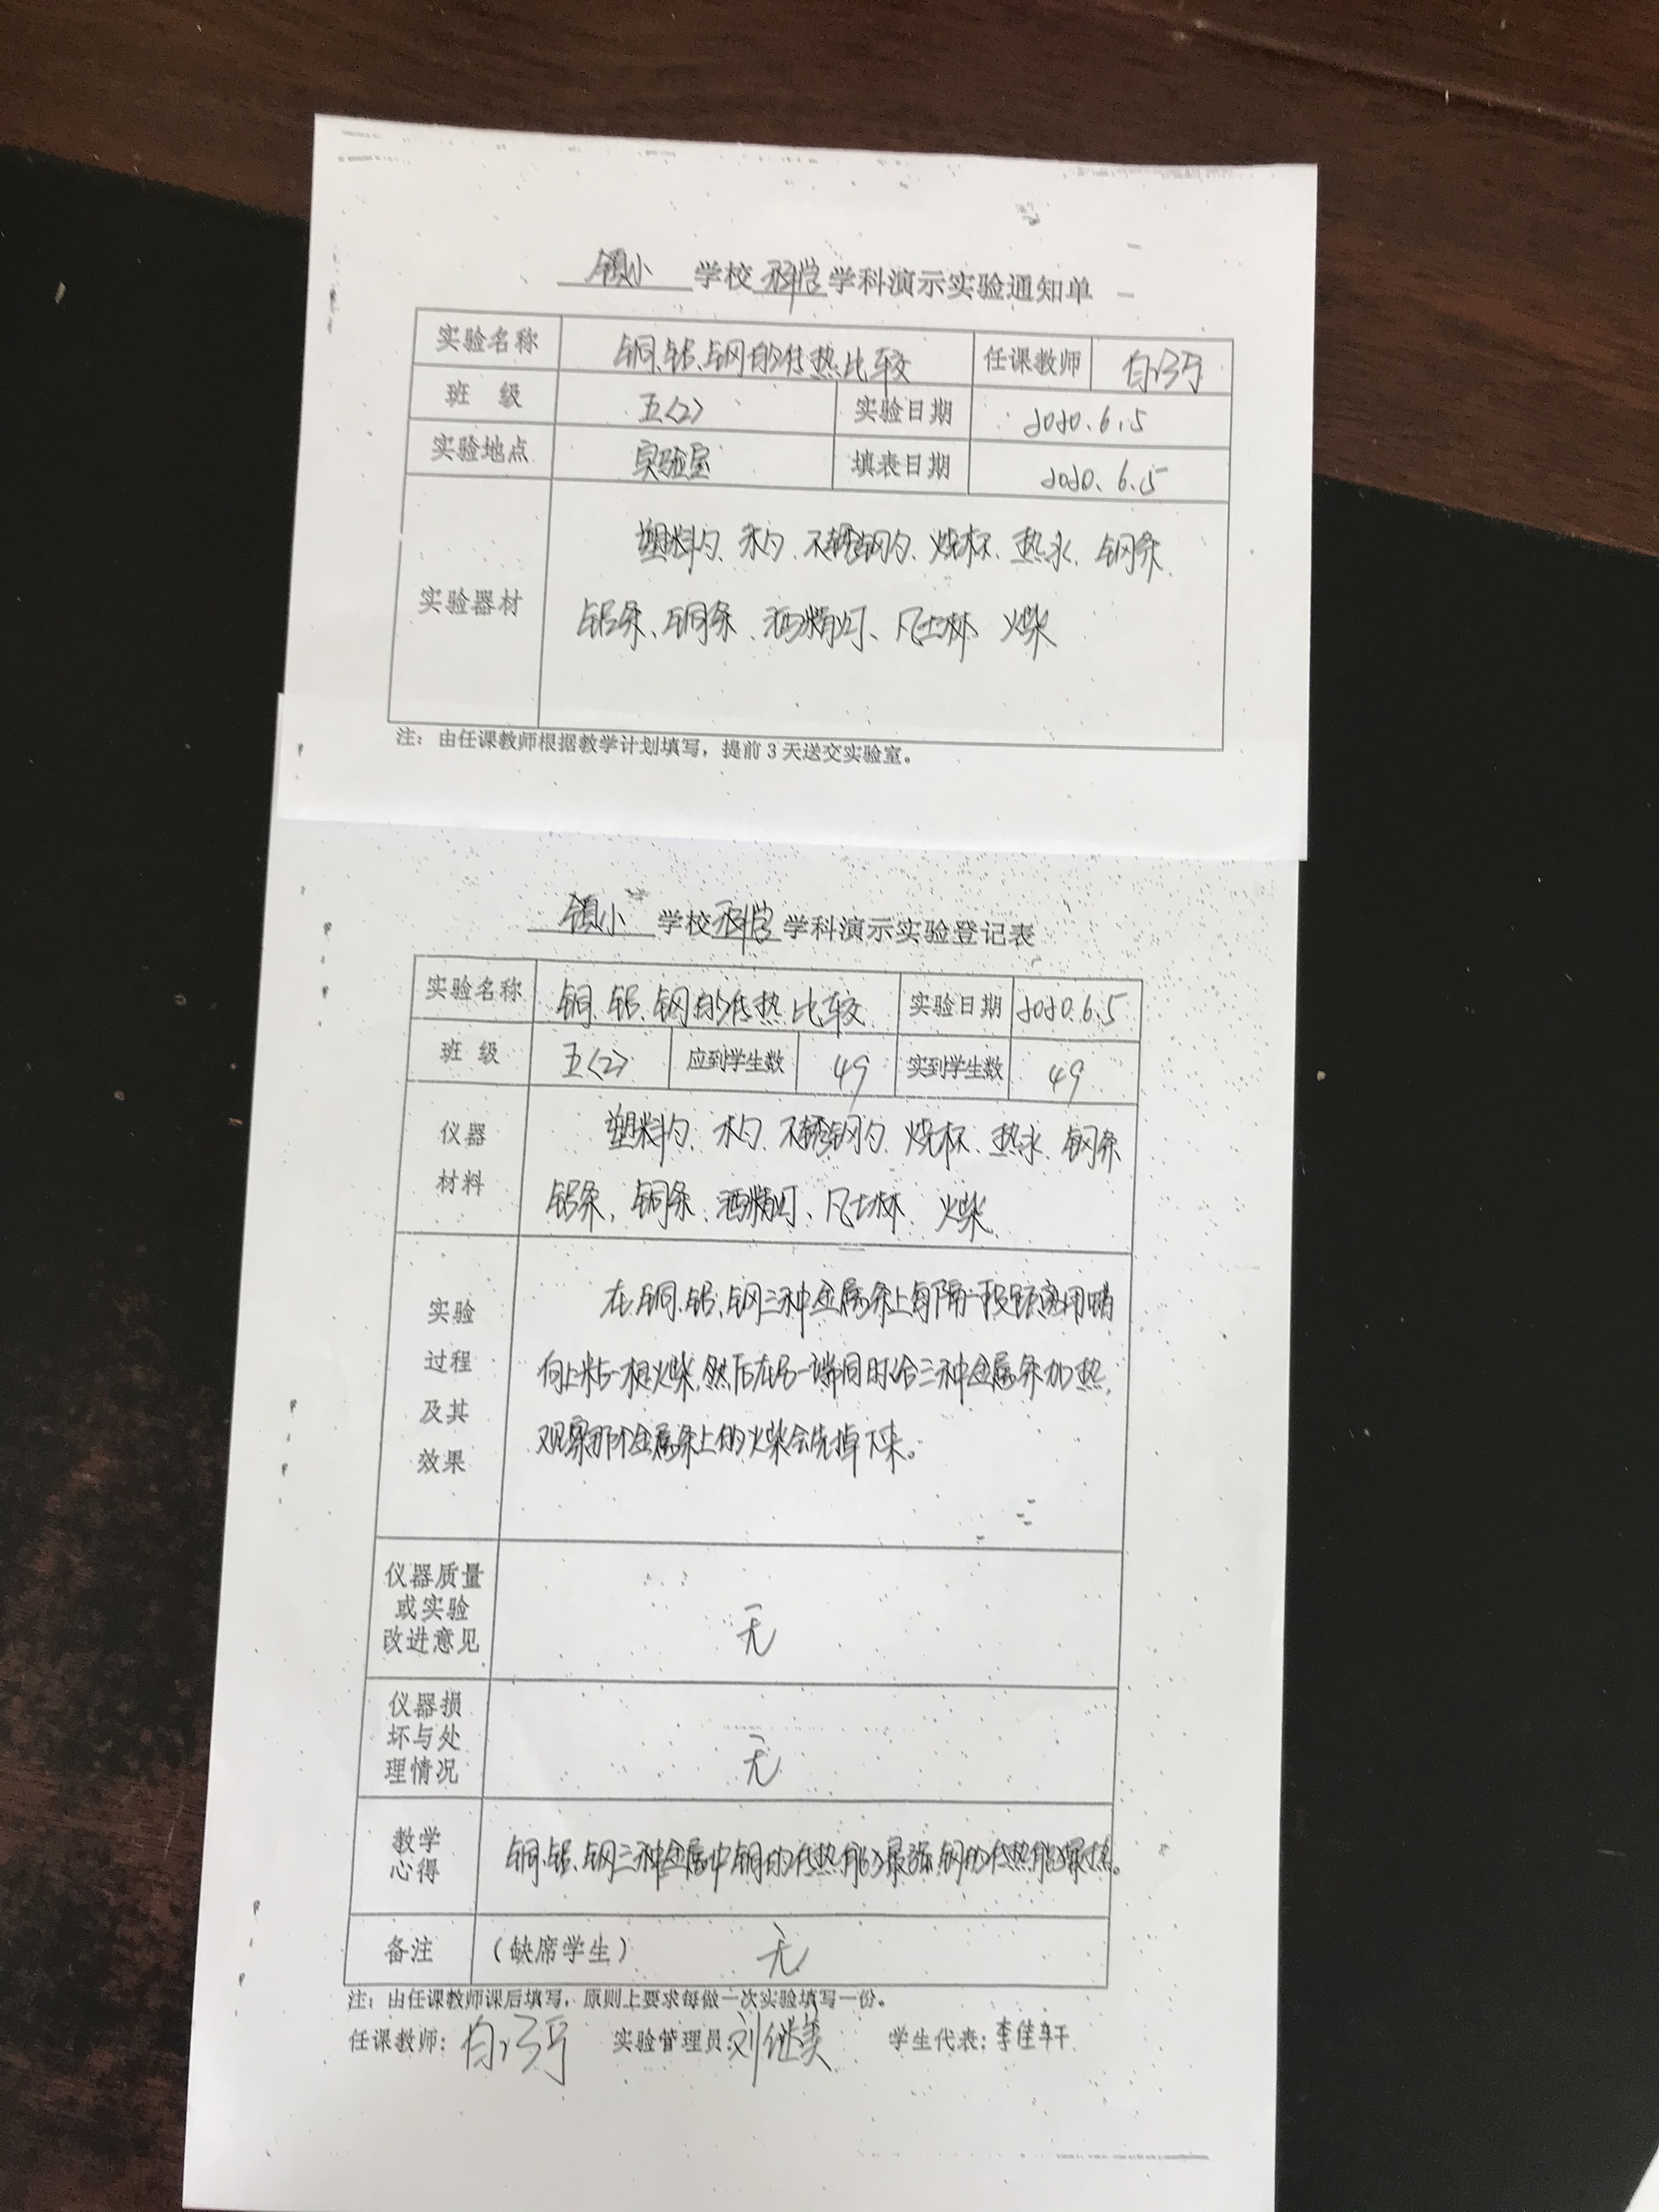 镇小 学校 科学 学科演示实验通知单
实验名称 铜、铝、钢的传热比较 任课教师
班 级 五<2> 实验日期 2020.6.5
实验地点 实验室 填表日期 2020.6.5
实验器材 塑料勺、木勺、不锈钢勺、烧杯、热水、钢条、
铝条、铜条、酒精灯、凡士林、火柴
注：由任课教师根据教学计划填写，提前3天送交实验室。
镇小 学校 科学 学科演示实验登记表
实验名称 铜、铝、钢的传热比较 实验日期 2020.6.5
班 级 五<2> 应到学生数 49 实到学生数 49
仪器 塑料勺、木勺、不锈钢勺、烧杯、热水、钢条
材料 铝条、铜条、酒精灯、凡士林、火柴
实验 在铜、铝、钢三种金属条上每隔一段距离用蜡
过程 向上粘一根火柴,然后在另一端同时给三种金属条加热,
及其 观察那个金属条上的火柴会先掉下来。
效果
仪器质量
或实验 无
改进意见
仪器损
坏与处 无
理情况
教学 铜、铝、钢三种金属中铜的传热能力最强,钢的传热能力最
心得
备注 （缺席学生） 无
注：由任课教师课后填写，原则上要求每做一次实验填写一份。
任课教师： 实验管理员：刘继美 学生代表：李佳轩